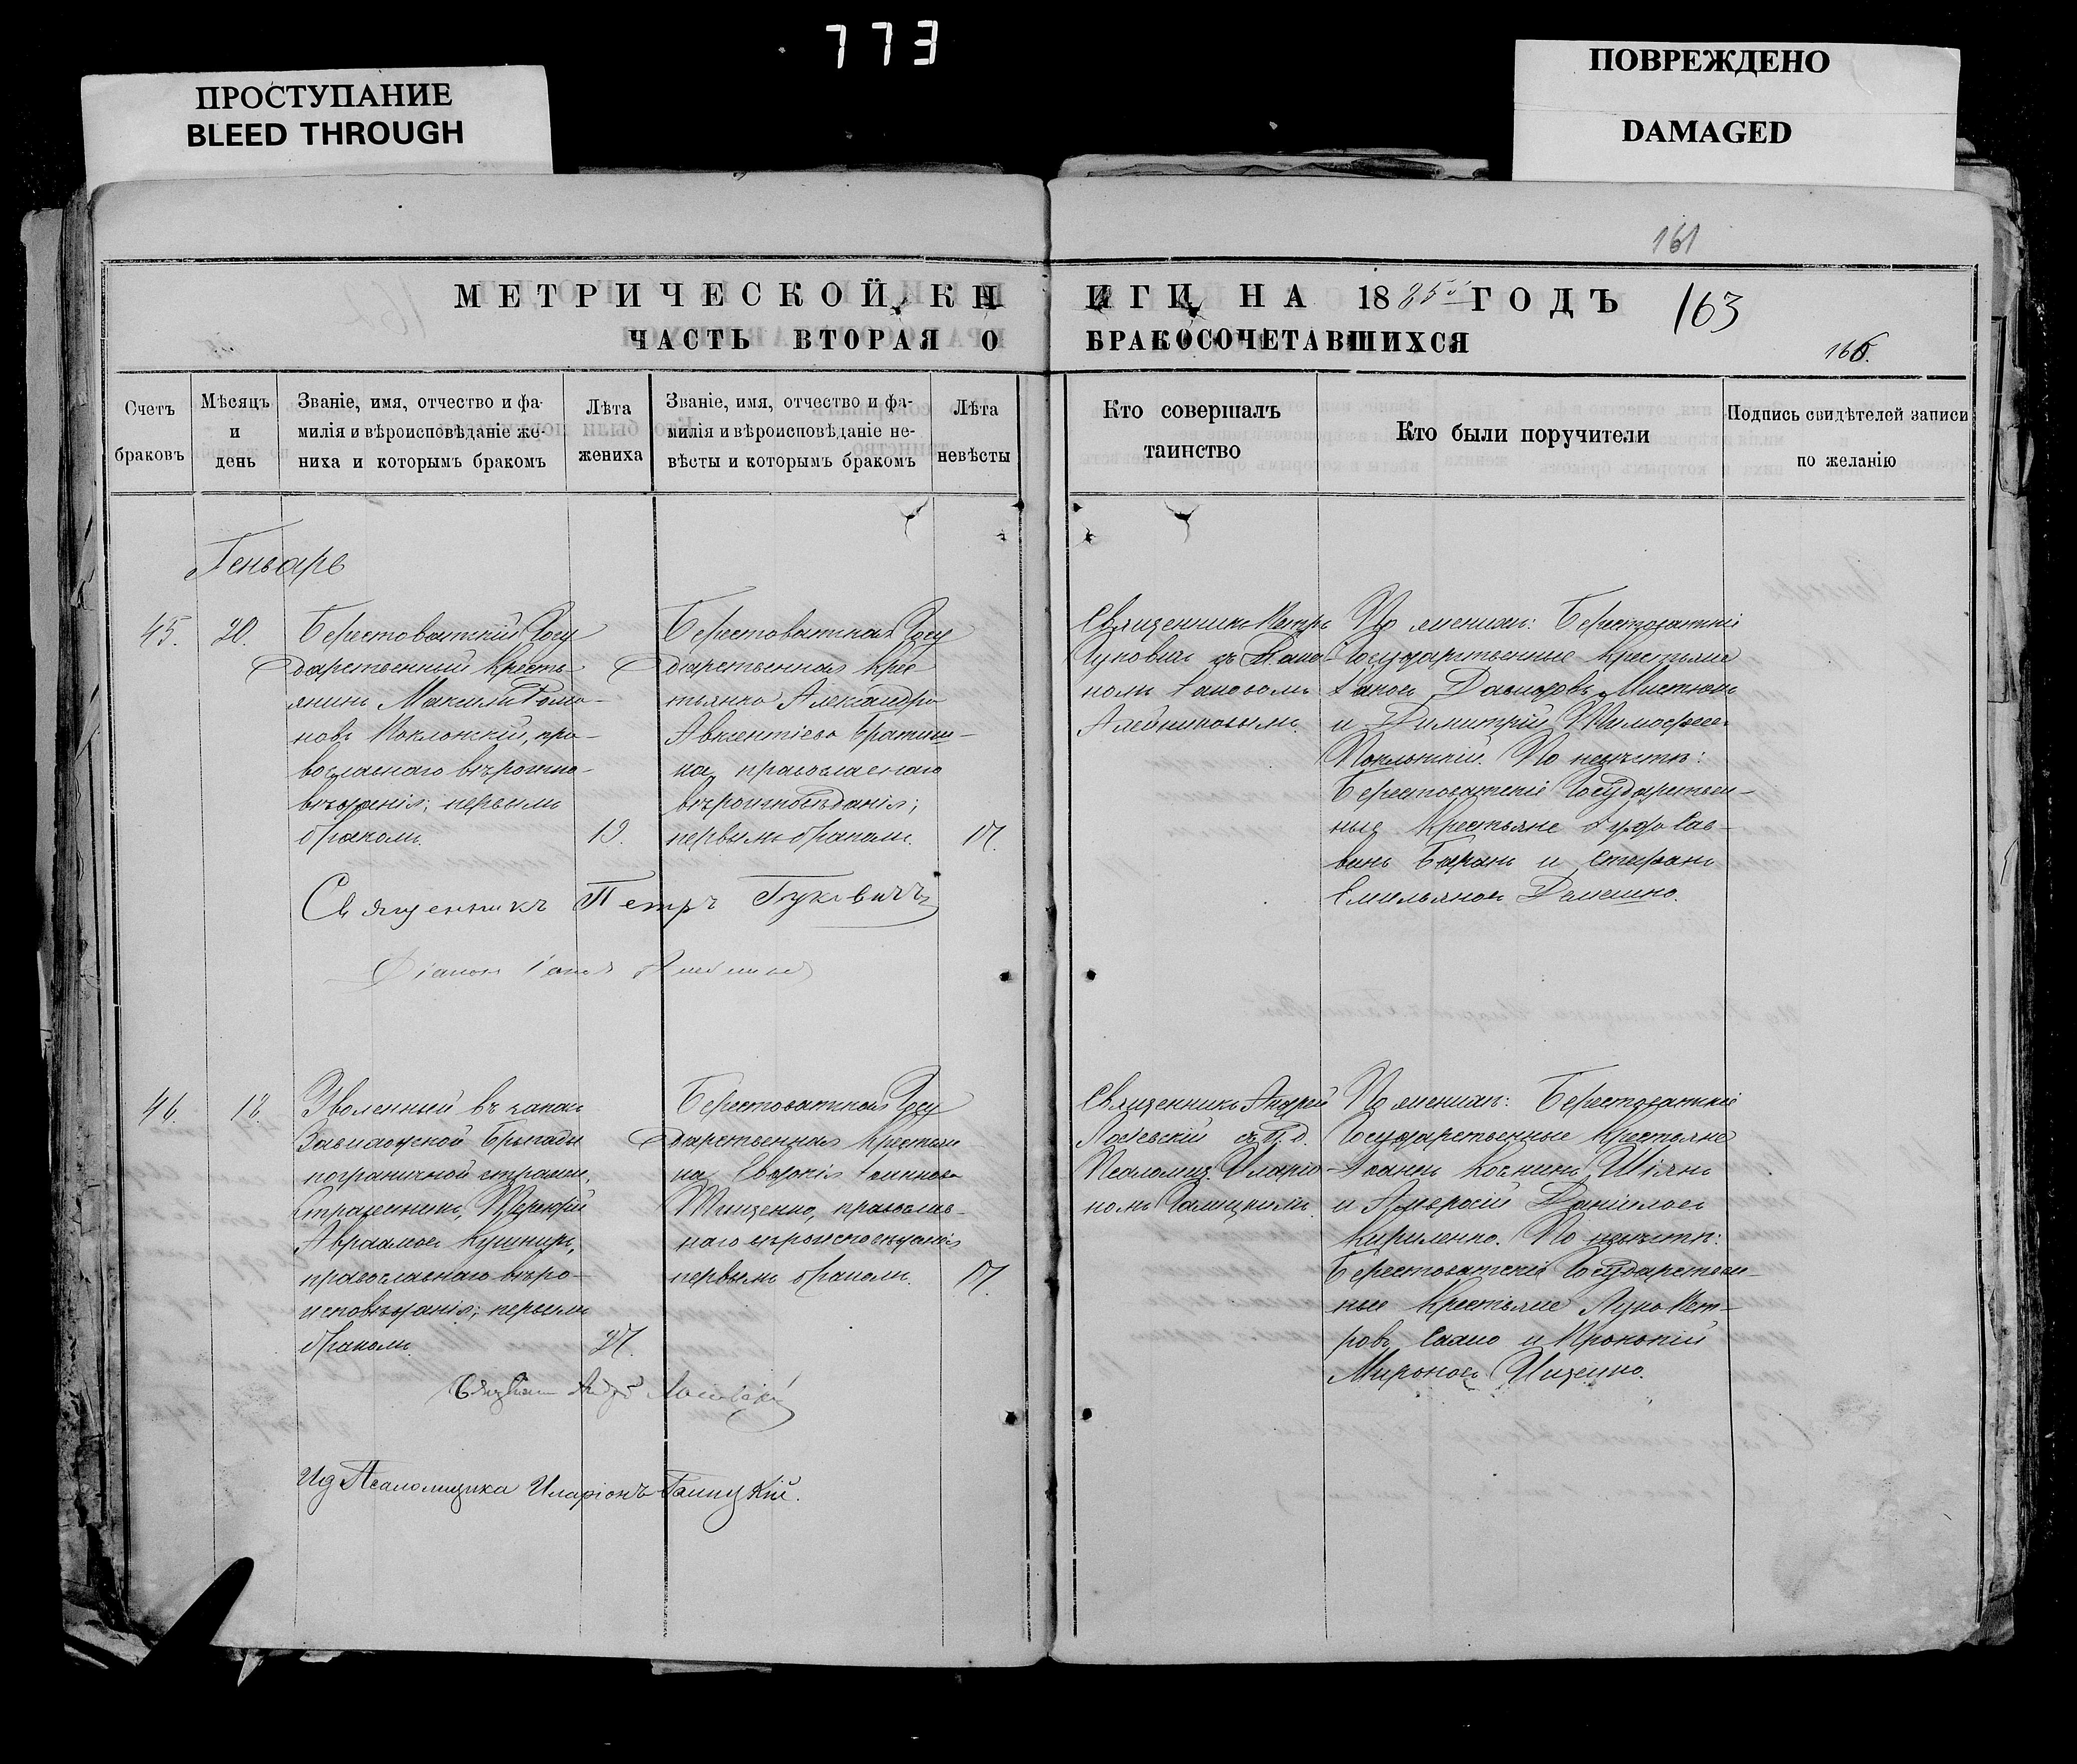 773
ПРОСТУПАНИЕ
BLEED THROUGH
ПОВРЕЖДЕНО
DAMAGED
161
МЕТРИЧЕСКОЙ КНИГИ НА 1885й ГОДЪ
163
ЧАСТЬ ВТОРАЯ О БРАКОСОЧЕТАВШИХСЯ
166.
Счетъ
браковъ
Мѣсяцъ
и
день
Званіе, имя, отчество и фа-
милія и вѣроисповѣданіе же-
ниха и которымъ бракомъ
Лѣта
жениха
Званіе, имя, отчество и фа-
милія и вѣроисповѣданіе не-
вѣсты и которымъ бракомъ
Лѣта
невѣсты
Кто совершалъ
таинство
Кто были поручители
Подпись свидѣтелей записи
по желанію
Генварь
45.
20.
Берестоватскій Госу
дарственный кресть-
янинъ Максимъ Рома-
новъ Поклонскій, пра-
вославнаго вѣроиспо-
вѣданія; первымъ
бракомъ.
19.
Берестоватская Госу
дарственная крес
тьянка Александра
Авксентіева
православнаго
вѣроисповѣданія;
первымъ бракомъ.
17.
Священникъ Петръ
Гуковичъ съ Діако-
номъ
По женихѣ: Берестоватскіе
Государственные крестьяне
и Димитрій Тимофеевъ
Поклонскій. По невѣстѣ:
Берестоватскіе Государствен-
ные крестьяне
и Стефанъ
Емельяновъ
Священникъ Петръ Гуковичъ
Діаконъ
46.
18.
Уволенный въ запасъ
бригады
пограничной стражи,
стражникъ,
Авраамовъ Кушниръ,
православнаго вѣро-
исповѣданія; первымъ
бракомъ.
27.
Берестоватская Госу
дарственная крестьян
ка Евдокія
Тищенко, православ-
наго вѣроисповѣданія
первымъ бракомъ.
17.
Священникъ Андрей
Лосіевскій съ и. д.
Псаломщ. Иларіо-
номъ Галицкимъ.
По женихѣ: Берестоватскіе
Государственные крестьяне
и Амвросій Даніиловъ
Кириленко. По невѣстѣ:
Берестоватскіе Государствен-
ные крестьяне Лука Пет-
ровъ и Прокопій
Мироновъ Ищенко.
Священникъ Андрей Лосіевскій
Ид Псаломщика Иларіонъ Галицкій.